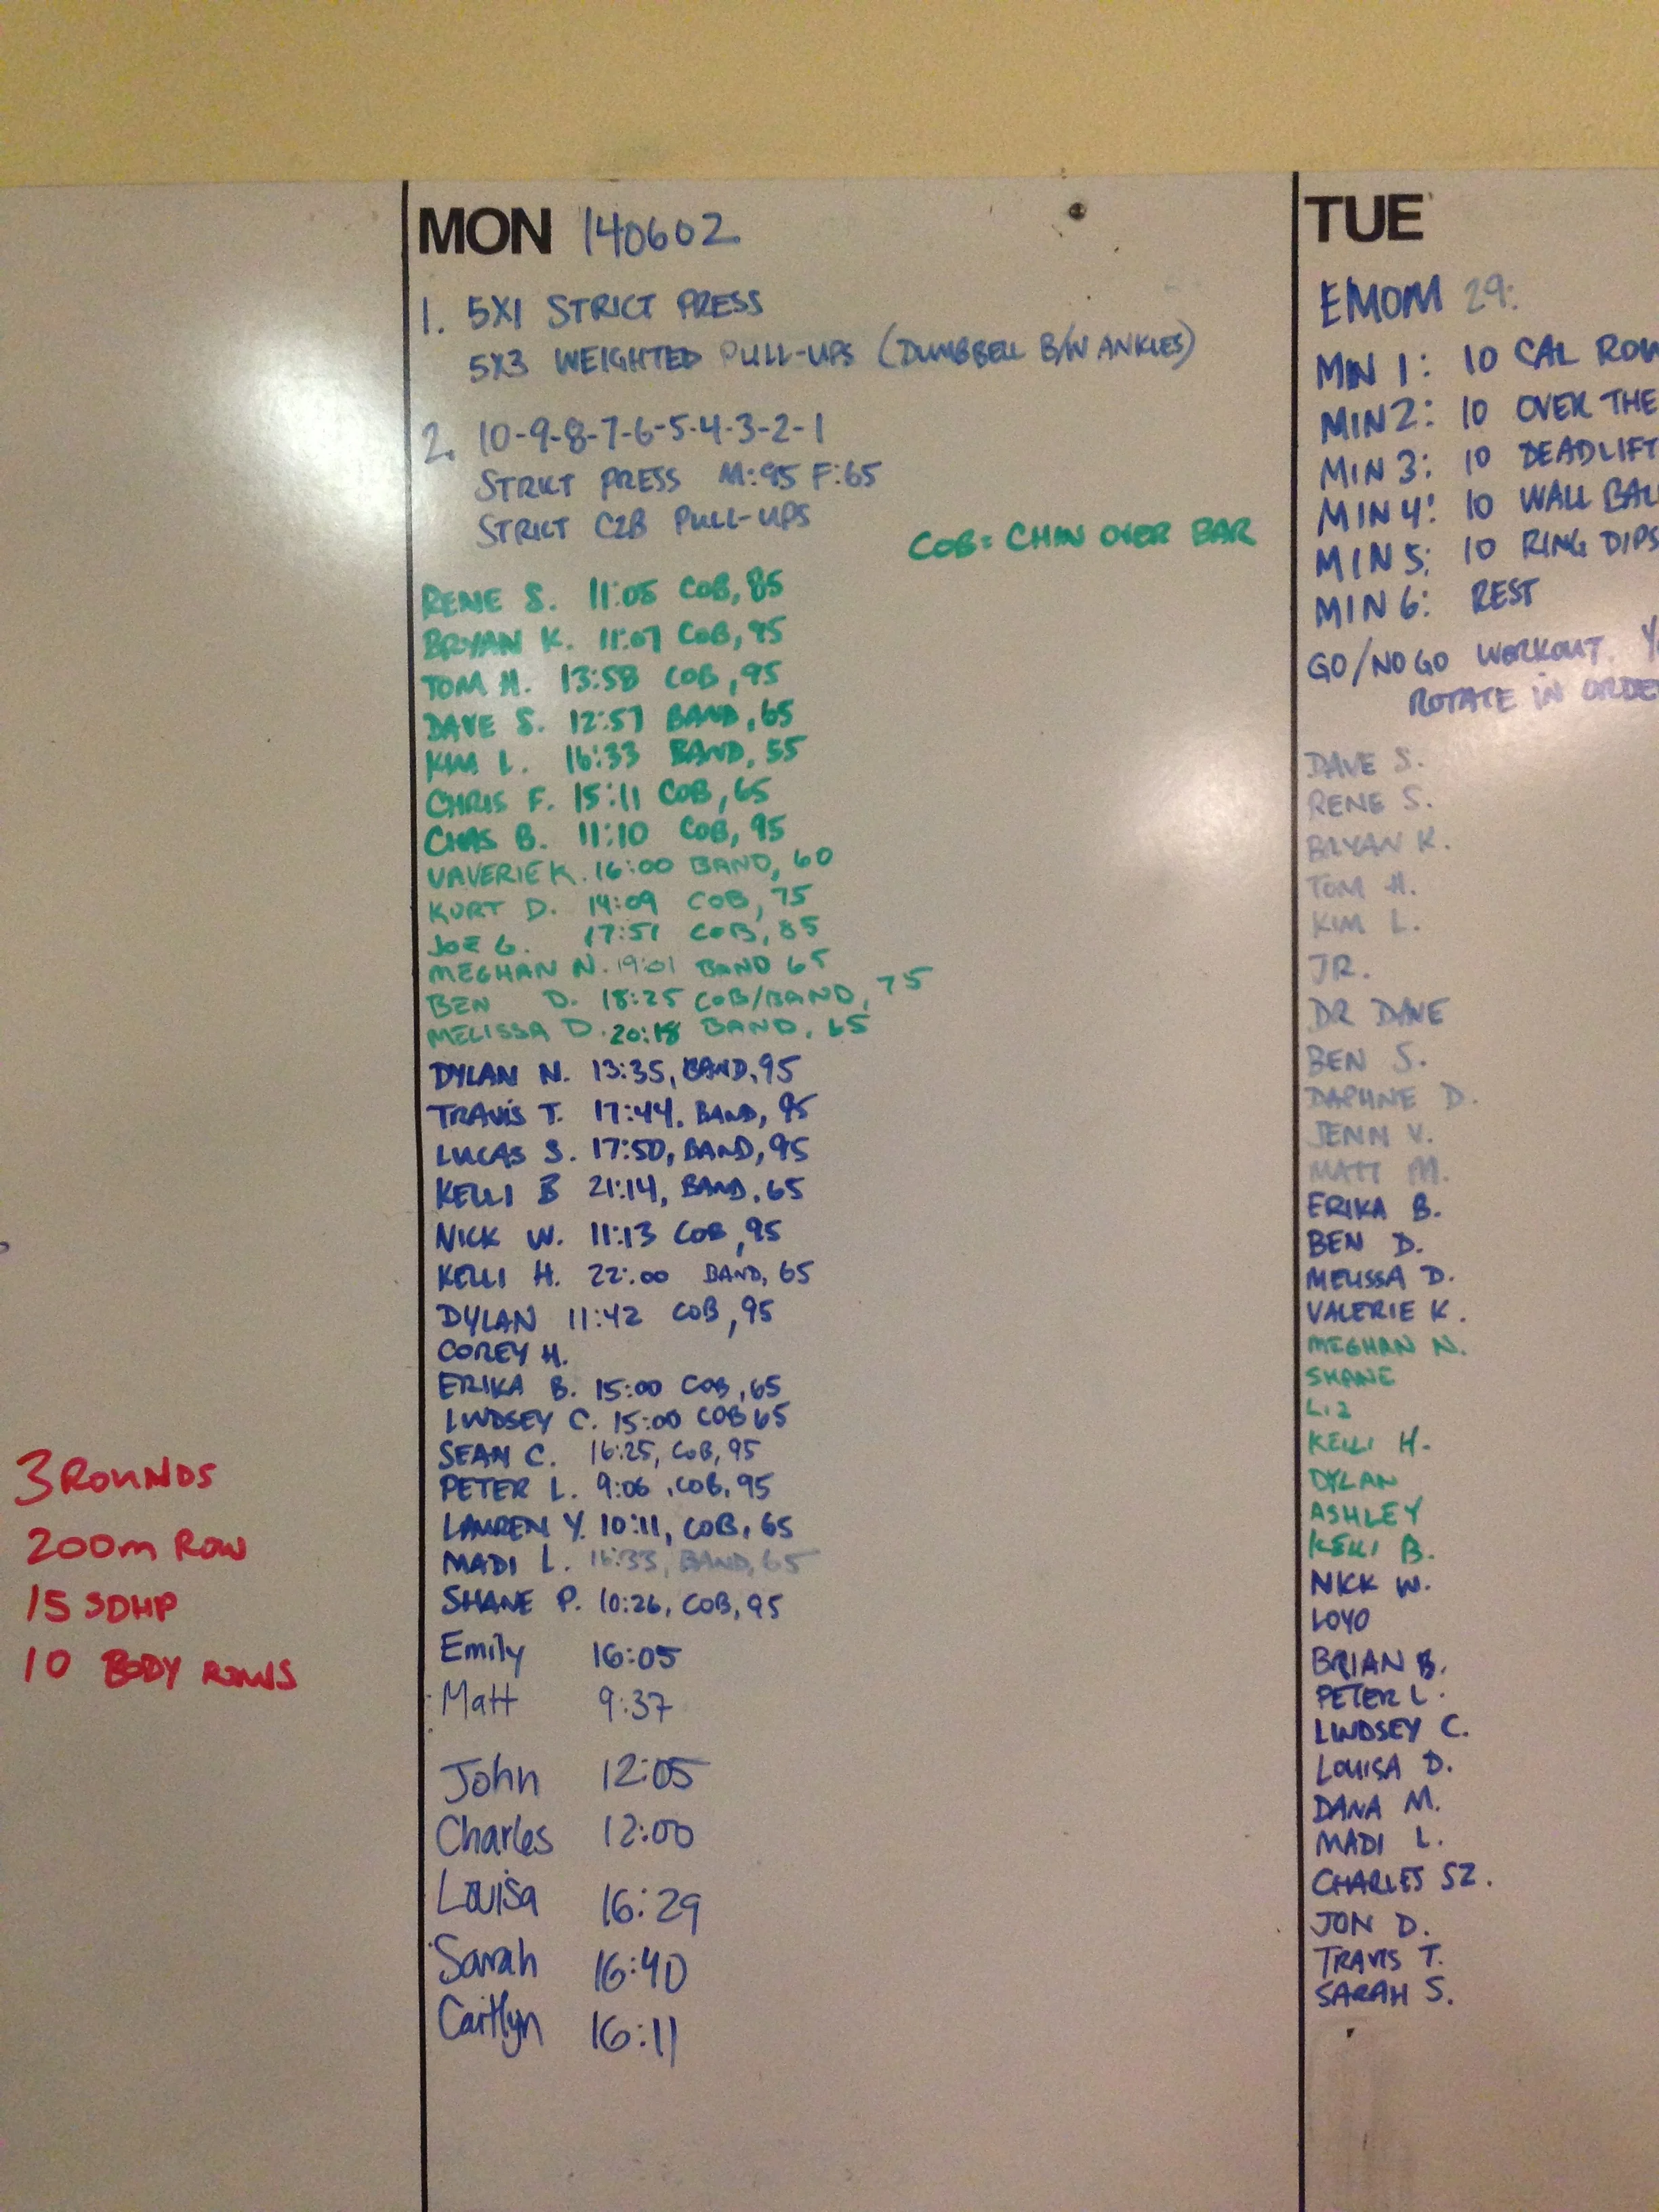 MON 140602
1. 5X1 STRICT PRESS
5X3 WEIGHTED PULL-UPS (DUMBBELL B/W ANKLES)
2. 10-9-8-7-6-5-4-3-2-1
STRICT PRESS M:95 F:65
STRICT C2B PULL-UPS
COB= CHIN OVER BAR
RENE S. 11:05 COB, 85
BRYAN K. 11:07 COB, 95
TOM H. 13:58 COB, 95
DAVE S. 12:57 BAND, 65
KIM L. 16:33 BAND, 55
CHRIS F. 15:11 COB, 65
CHAS B. 11:10 COB, 95
VAVERIE K. 16:00 BAND, 60
KURT D. 14:09 COB, 75
JOE G. 17:51 COB, 85
MEGHAN N. 19:01 BAND 65
BEN D. 18:25 COB/BAND, 75
MELISSA D. 20:18 BAND, 65
DYLAN N. 13:35, BAND, 95
TRAVIS T. 17:44, BAND, 95
LUCAS S. 17:50, BAND, 95
KELLI B 21:14, BAND, 65
NICK W. 11:13 COB, 95
KELLI H. 22:00 BAND, 65
DYLAN 11:42 COB, 95
COREY H.
ERIKA B. 15:00 COB, 65
LINDSEY C. 15:00 COB 65
SEAN C. 16:25, COB, 95
PETER L. 9:06, COB, 95
LAUREN Y. 10:11, COB, 65
MADI L. 16:33, BAND, 65
SHANE P. 10:26, COB, 95
Emily 16:05
Matt 9:37
John 12:05
Charles 12:00
Louisa 16:29
Sarah 16:40
Caitlyn 16:11
3 ROUNDS
200m ROW
15 SDHP
10 BODY ROWS
TUE
EMOM 29:
MIN 1: 10 CAL ROW
MIN 2: 10 OVER THE
MIN 3: 10 DEADLIFT
MIN 4: 10 WALL BAL
MIN 5: 10 RING DIPS
MIN 6: REST
GO/NO GO WORKOUT.
ROTATE IN ORDE
DAVE S.
RENE S.
BRYAN K.
TOM H.
KIM L.
JR.
DR DAVE
BEN S.
DAPHNE D.
JENN V.
MATT M.
ERIKA B.
BEN D.
MELISSA D.
VALERIE K.
MEGHAN N.
SHANE
LIZ
KELLI H.
DYLAN
ASHLEY
KELLI B.
NICK W.
LOYO
BRIAN B.
PETER L.
LINDSEY C.
LOUISA D.
DANA M.
MADI L.
CHARLES SZ.
JON D.
TRAVIS T.
SARAH S.